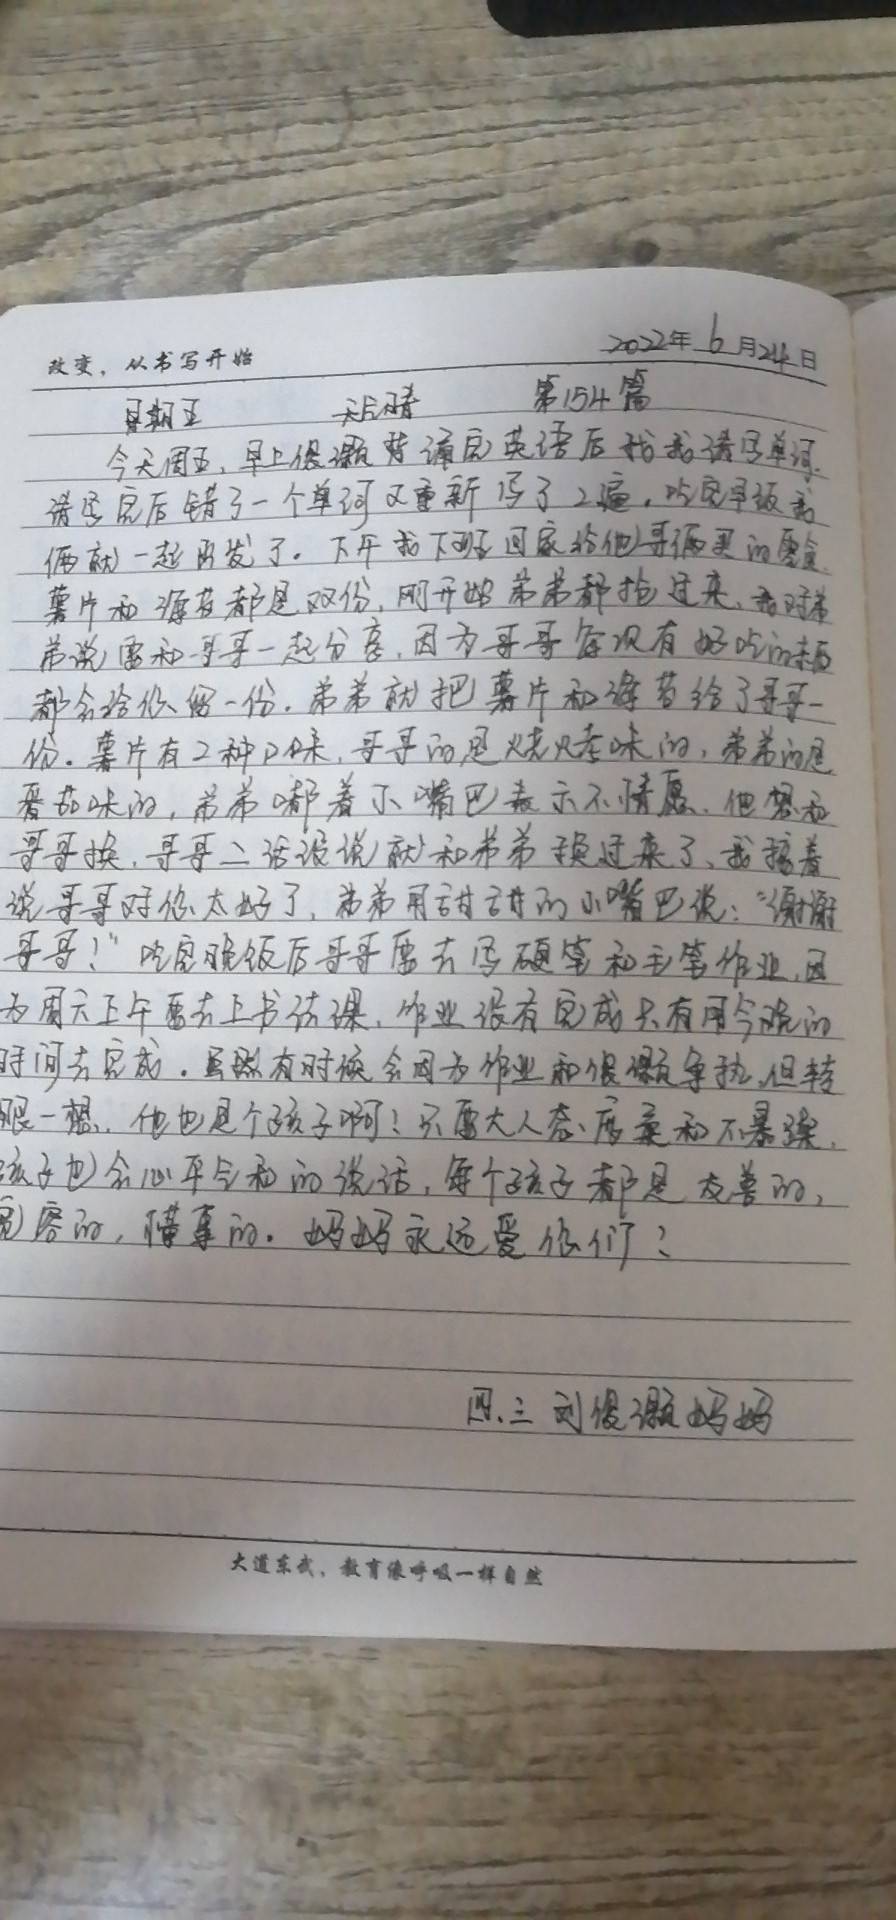 改变，从书写开始
2022年6月24日
星期五 天气晴 第154篇
今天周五，早上俊灏背诵完英语后我听写单词
听写完后错了一个单词又重新写了2遍。吃完早饭我
俩就一起出发了。下午我下班回家给他哥俩买的零食，
薯片和海苔都是双份，刚开始弟弟都抢过来，我对弟
弟说要和哥哥一起分享，因为哥哥每次有好吃的东西
都会给你留一份。弟弟就把薯片和海苔给了哥哥一
份。薯片有2种口味，哥哥的是烧烤味的，弟弟的是
番茄味的，弟弟嘟着小嘴巴表示不情愿，他想和
哥哥换，哥哥二话没说就和弟弟换过来了，我接着
说哥哥对你太好了，弟弟用甜甜的小嘴巴说：“谢谢
哥哥！”吃完晚饭后哥哥要去写硬笔和毛笔作业，因
为周六上午要去上书法课，作业没有完成只有用今晚的
时间去完成。虽然有时候会因为作业和俊灏争执，但转
眼一想，他也是个孩子啊！只要大人态度柔和不暴躁，
孩子也会心平气和的说话，每个孩子都是友善的，
宽容的，懂事的。妈妈永远爱你们！
四.三 刘俊灏妈妈
大道东武，教育像呼吸一样自然